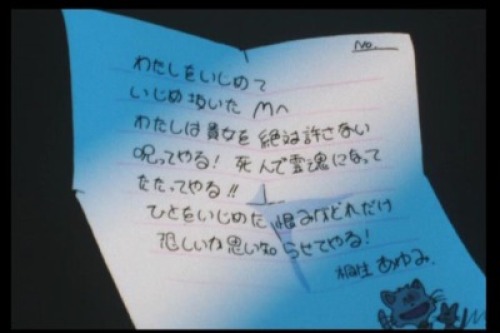 No.
わたしをいじめて
いじめ抜いた Mへ
わたしは貴女を絶対許さない
呪ってやる! 死んで霊魂になって
たたってやる!!
ひとをいじめた 恨みがどれだけ
恐しいか思い知らせてやる!
桐生 あゆみ